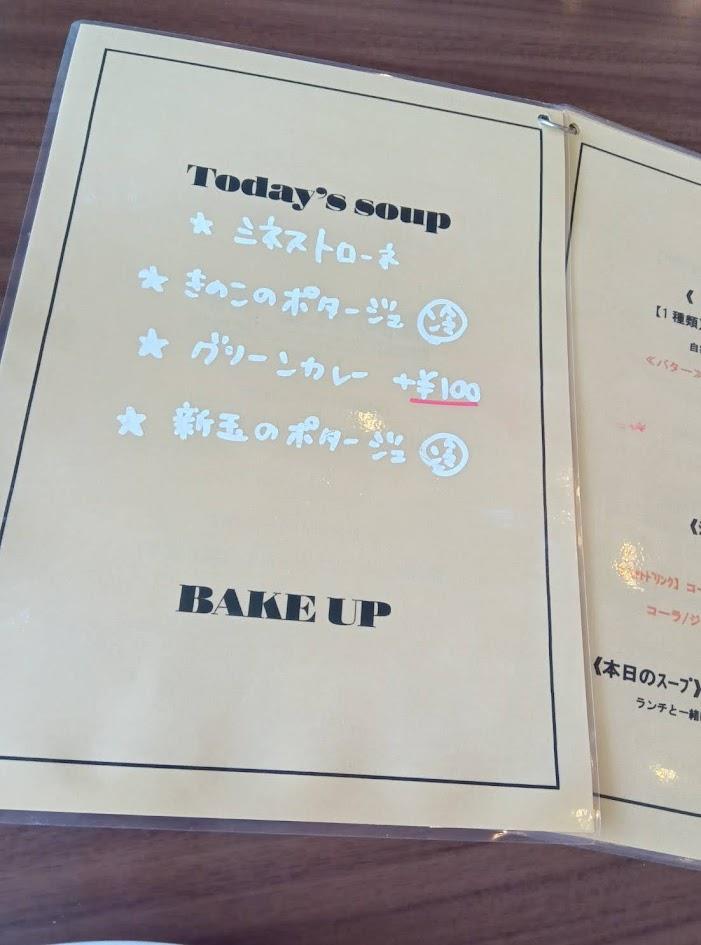 Today's soup
★ ミネストローネ
★ きのこのポタージュ 冷
★ グリーンカレー +¥100
★ 新玉のポタージュ 冷
BAKE UP
《
【1種類
自
≪バター
ットドリンク】 コー
コーラ/ジ
《本日のスープ》
ランチと一緒